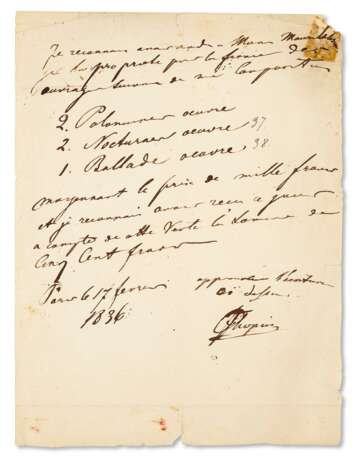 Je reconnais avoir vendu a Mr
la propriété pour la france des
ouvrages suivans de ma Composition
2. Polonaises oeuvre
2. Nocturnes oeuvre 37
1. Ballade oeuvre 38
moyennant le prix de mille francs
et je reconnais avoir reçu ce jour
a compte de cette Vente la Somme de
Cinq Cent francs
Paris le 17 fevrier
1836
approuvé l'écriture
ci dessus
Chopin